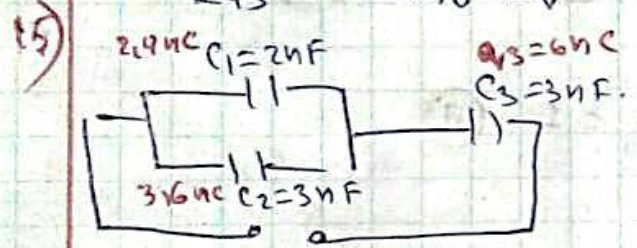 15)
2,4nC C1=2nF
q3=6nC
C3=3nF.
3,6nC C2=3nF